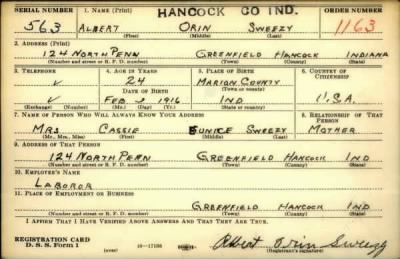 HANCOCK CO IND.
SERIAL NUMBER 1. NAME (Print) ORDER NUMBER
563 ALBERT ORIN SWEEZY 1163
(First) (Middle) (Last)
2. ADDRESS (Print)
124 NORTH PENN GREENFIELD HANCOCK INDIANA
(Number and street or R. F. D. number) (Town) (County) (State)
3. TELEPHONE 4. AGE IN YEARS 5. PLACE OF BIRTH 6. COUNTRY OF CITIZENSHIP
24 MARION COUNTY
DATE OF BIRTH (Town or county)
FEB 2 1916 IND U.S.A.
(Exchange) (Number) (Mo.) (Day) (Yr.) (State or country)
7. NAME OF PERSON WHO WILL ALWAYS KNOW YOUR ADDRESS 8. RELATIONSHIP OF THAT PERSON
MRS CASSIE EUNICE SWEEZY MOTHER
(Mr., Mrs., Miss) (First) (Middle) (Last)
9. ADDRESS OF THAT PERSON
124 NORTH PENN GREENFIELD HANCOCK IND
(Number and street or R. F. D. number) (Town) (County) (State)
10. EMPLOYER'S NAME
LABOROR
11. PLACE OF EMPLOYMENT OR BUSINESS
GREENFIELD HANCOCK IND
(Number and street or R. F. D. number) (Town) (County) (State)
I AFFIRM THAT I HAVE VERIFIED ABOVE ANSWERS AND THAT THEY ARE TRUE.
REGISTRATION CARD
D. S. S. Form 1 (over) Albert Orin Sweezy